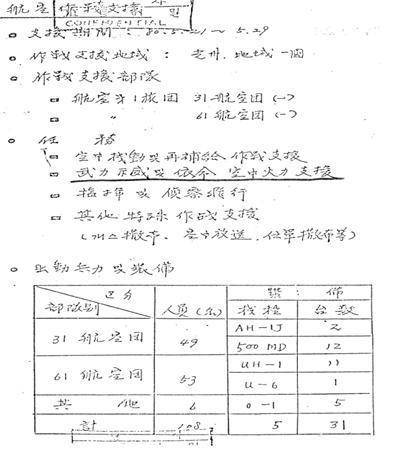 航空 作戰支援
CONFIDENTIAL
○ 支援期間 : 80.5.21 ~ 5.29
○ 作戰支援地域 : 光州 地域 一圓
○ 作戰支援部隊
□ 航空 第1旅団 31 航空団 (-)
□ 〃 61 航空団 (-)
○ 任務
□ 空中機動 및 再補給 作戰支援
□ 武力示威 및 依命 空中火力支援
□ 指揮 및 偵察飛行
□ 其他 特殊 作戰支援
(가스撒布, 空中放送, 삐라撒布等)
○ 出動兵力 및 裝備
部隊別 区分 人員 (名) 裝備
機種 台数
31 航空団 49 AH-1J 2
500MD 12
61 航空団 53 UH-1 11
U-6 1
其他 6 O-1 5
計 108 5 31